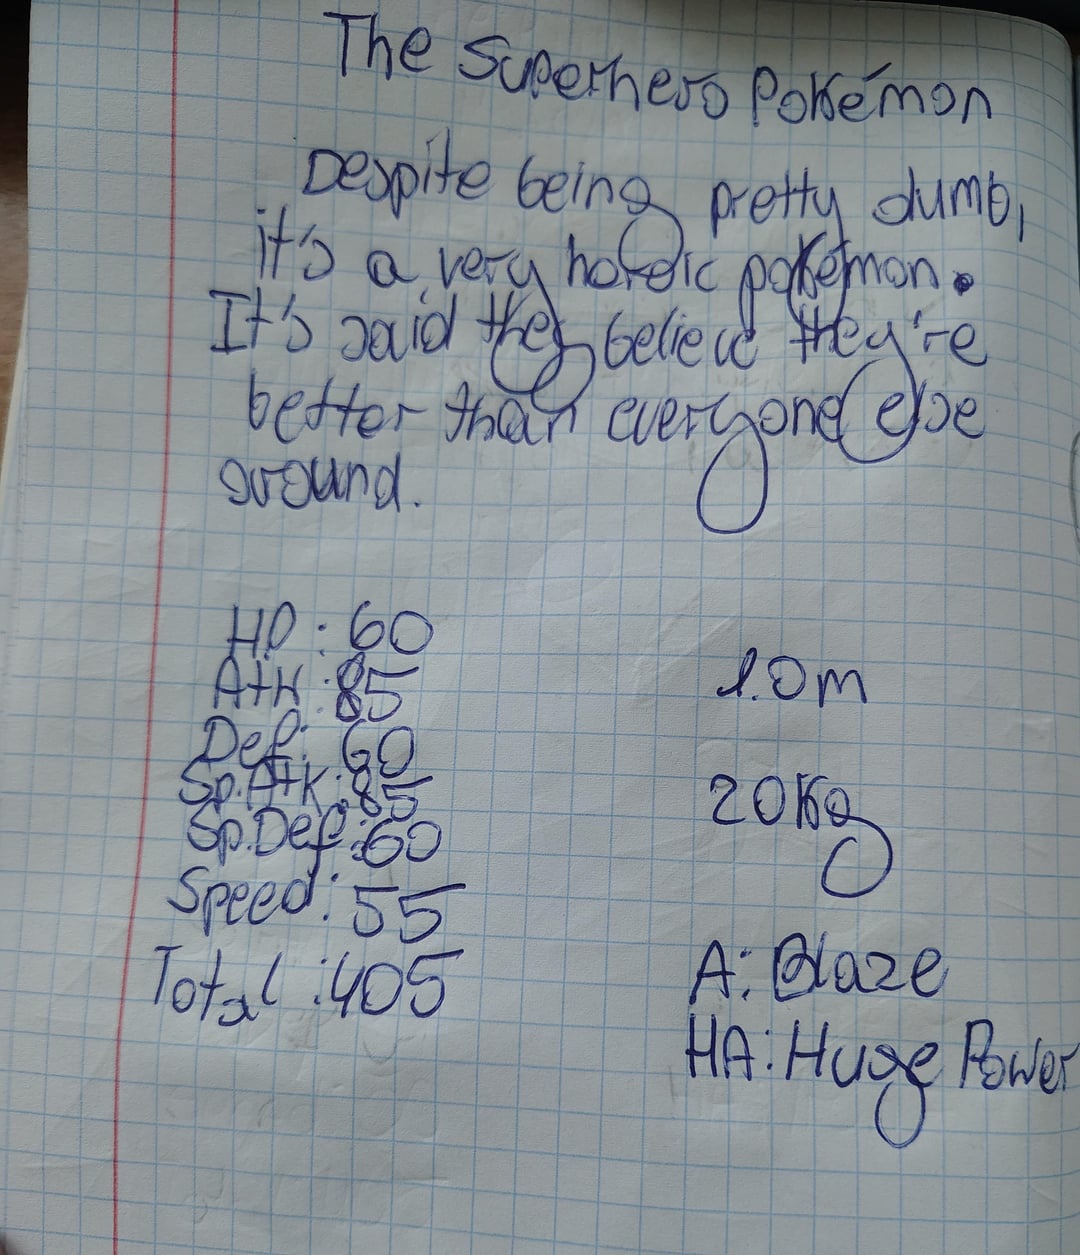 The Superhero Pokémon
Despite being pretty dumb,
it's a very heroic pokémon.
It's said they believe they're
better than everyone else
around.
HP: 60
Atk: 85
Def: 60
Sp.Atk: 85
Sp.Def: 60
Speed: 55
Total: 405
1.0m
20Kg
A: Blaze
HA: Huge Power